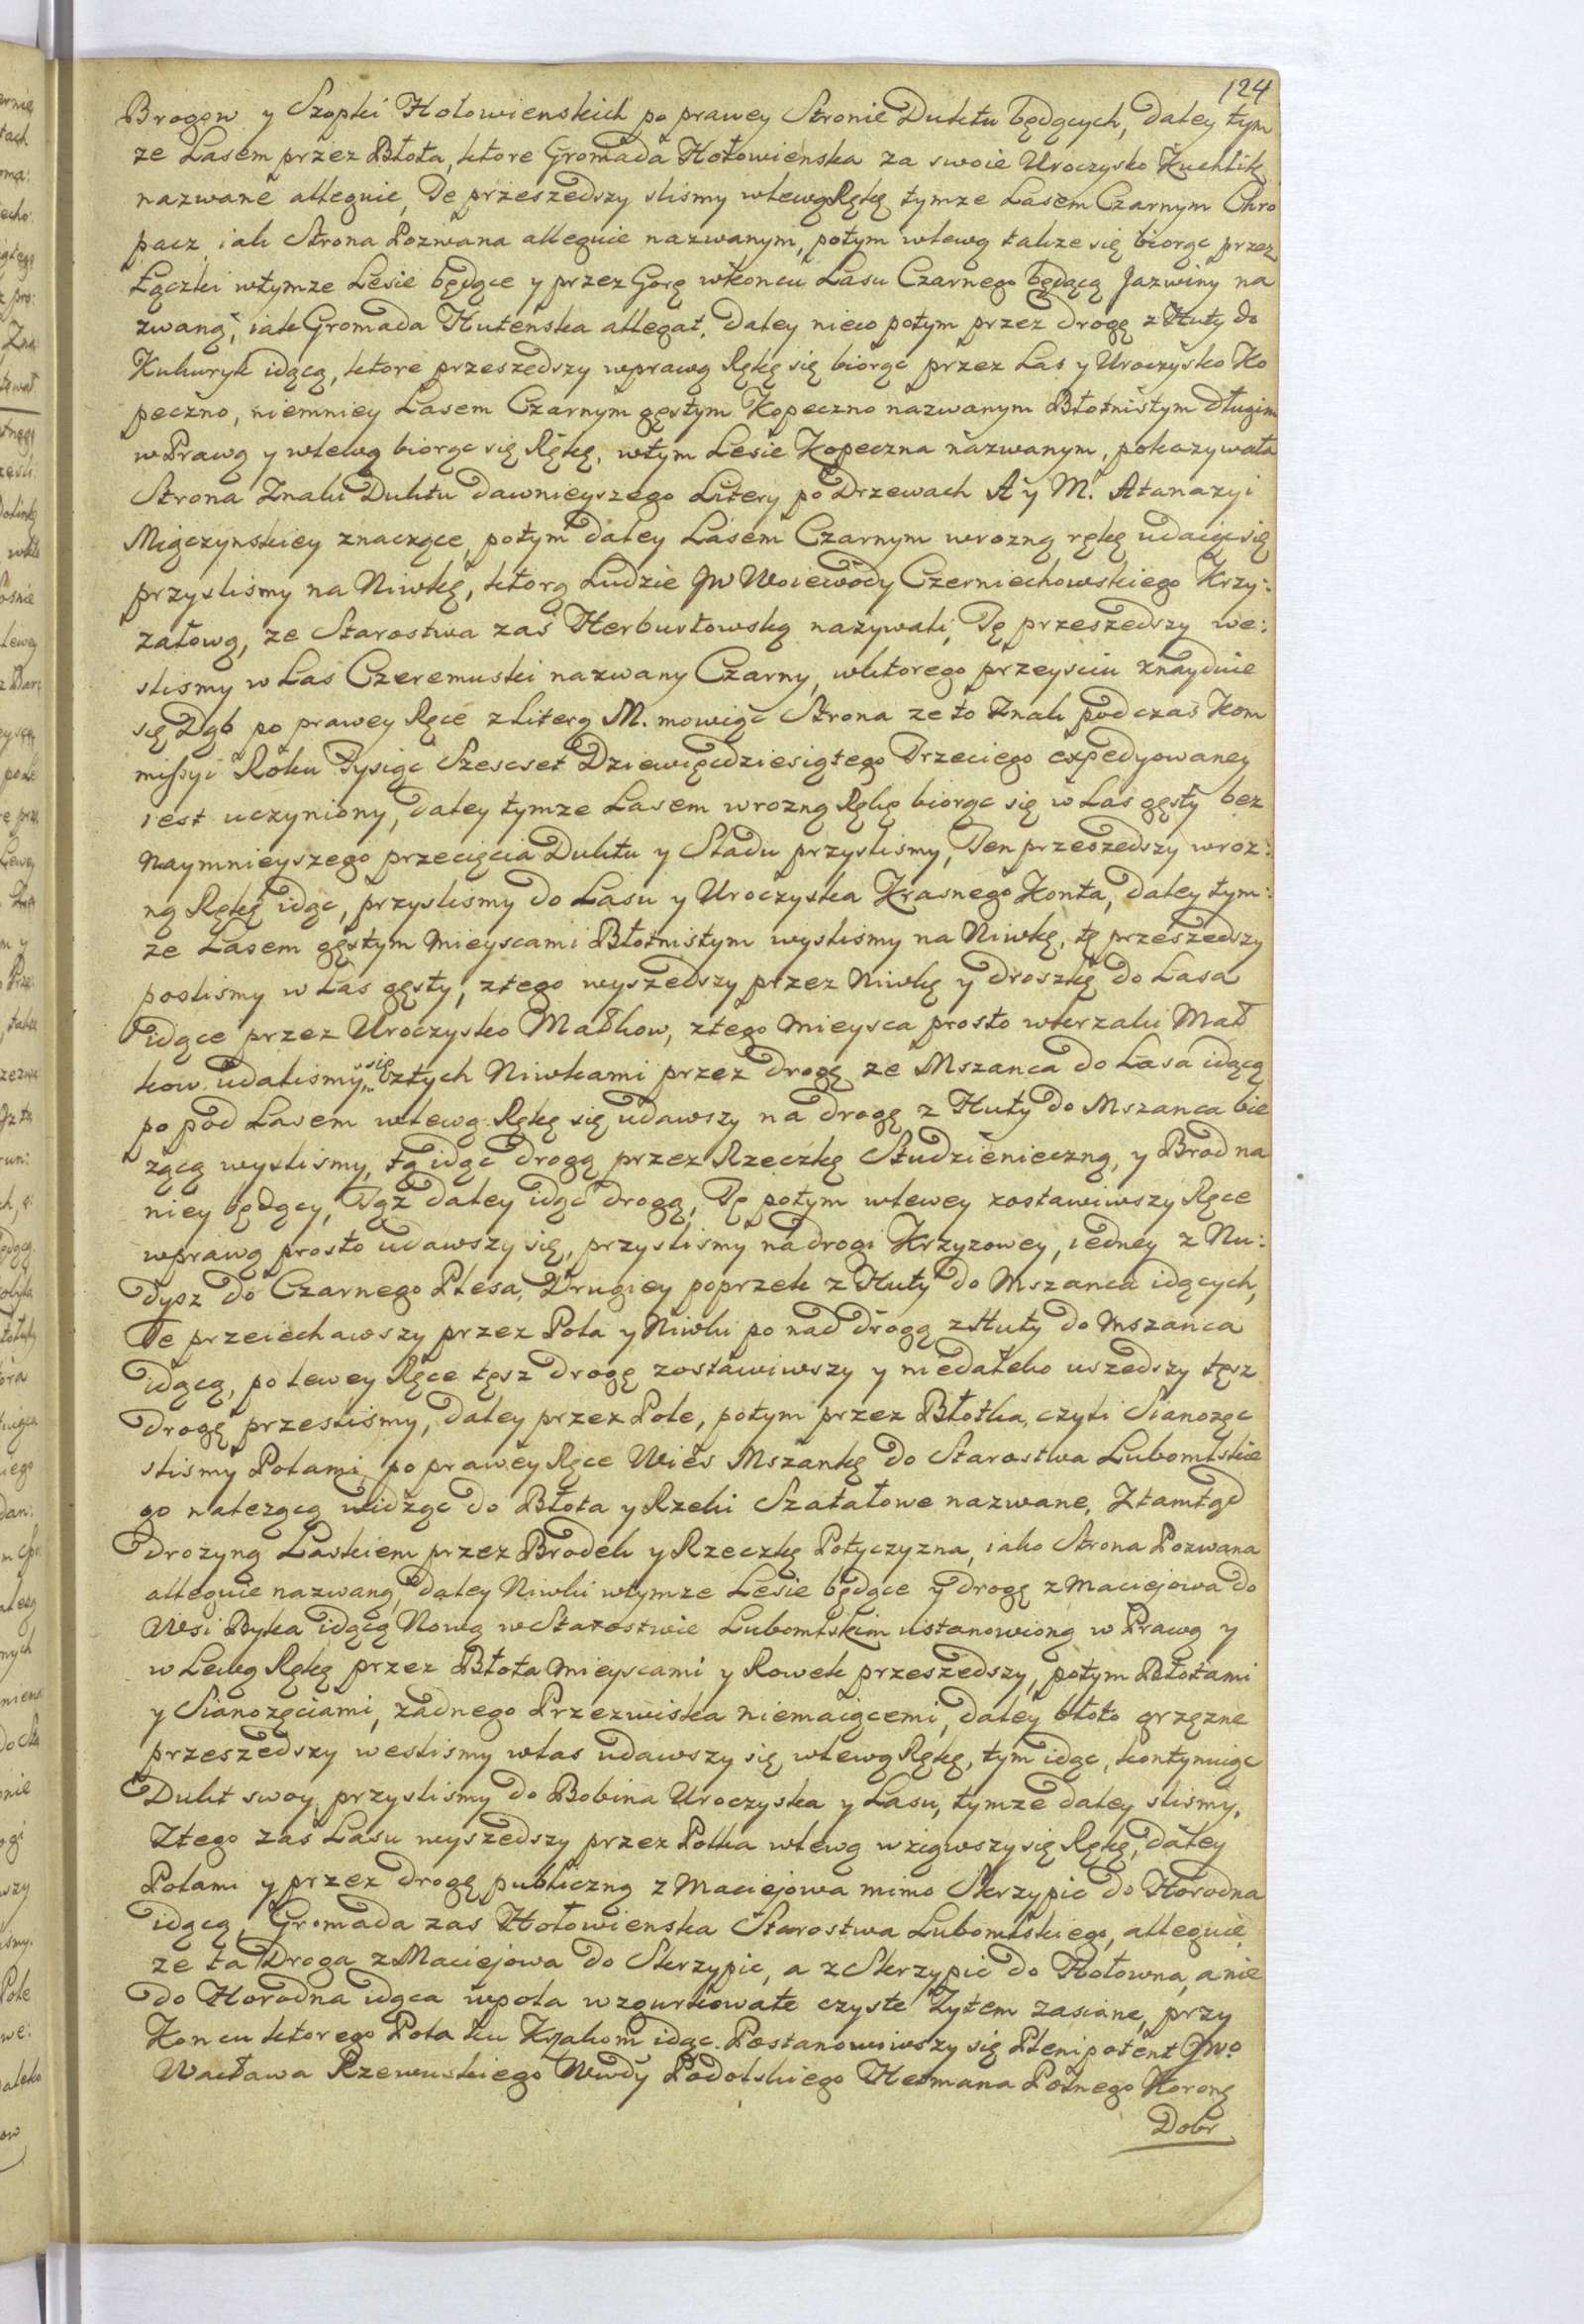 124
Brogow y Szopki Hołowienskich po prawey Stronie Duktu będących, daley tym
ze Lasem przez Błota, ktore Gromada Hołowienska za swoie Uroczysko Kuchlik
nazwane alleguie, Te przeszedszy slismy wlewą Rękę tymze Lasem Czarnym Chro
pacz iak Strona Pozwana alleguie nazwanym, potym wlewą takze się biorąc przez
Łączki wtymze Lesie będące y przez Gorę wkoncu Lasu Czarnego będącą Jazwiny na
zwaną, iak Gromada Hutenska allegat, daley nieco potym przez drogę z Huty do
Kukuryk idącą, ktore przeszedszy wprawą Rękę się biorąc przez Las y Uroczysko Ko
peczno, niemniey Lasem Czarnym gęstym Kopeczno nazwanym Błotnistym długim
w Prawą y wlewą biorąc się Rękę, wtym Lesie Kopeczna nazwanym, pokazywała
Strona Znaki Duktu dawnieyszego Litery po Drzewach A y M. Atanazyi
Miączynskiey znaczące, potym daley Lasem Czarnym wrozną rękę udaiąc się
przyslismy na Niwkę, ktorą Ludzie JW Woiewody Czerniechowskiego Krzy:
zatową, ze Starostwa zaś Herburtowską nazywali, Tę przeszedszy we:
slismy w Las Czeremuski nazwany Czarny, wktorego przeysciu znayduie
się Dąb po prawey Ręce z Literą M. mowiąc Strona ze to Znak podczas Kom
missyi Roku Tysiąc Szescset Dziewięcdziesiątego Trzeciego expedyowaney
iest uczyniony, daley tymze Lasem wrozną Rękę biorąc się w Las gęsty bez
naymnieyszego przecięcia Duktu y Sladu przyslismy, Ten przeszedszy wroz:
ną Rękę idąc, przyslismy do Lasu y Uroczyska Krasnego Konta, daley tym:
ze Lasem gęstym mieyscami Błotnistym wyslismy na Niwkę, tę przeszedszy
poslismy w Las gęsty, ztego wyszedszy przez Niwkę y droszkę do Lasa
idące przez Uroczysko Małkow, ztego mieysca prosto wkrzaki Mał
kow udalismy się ztych Niwkami przez drogę ze Mszanca do Lasa idącą
po pod Lasem wlewą Rękę się udawszy na drogę z Huty do Mszanca bie
zącą wyslismy, tą idąc drogą przez Rzeczkę Studzienieczną, y Brod na
niey będący, Tąz daley idąc drogą, Tę potym wlewey zostawiwszy Ręce
wprawą prosto udawszy się, przyslismy na drogi Krzyzowey, iedney z Nu:
dysz do Czarnego Plesa, Drugiey poprzek z Huty do Mszanca idących,
Te przeiechawszy przez Pola y Niwki po nad drogą z Huty do Mszanca
idącą, po lewey Ręce tęsz drogę zostawiwszy y niedaleko uszedszy tęsz
drogę przeslismy, daley przez Pole, potym przez Błotka, czyli Sianozęc
slismy Polami, po prawey Ręce Wies Mszankę do Starostwa Lubomlskie
go nalezącą widząc do Błota y Rzeki Szatałowe nazwane, Ztamtąd
drozyną Laskiem przez Brodek y Rzeczkę Potyczyzna, iako Strona Pozwana
alleguie nazwaną, daley Niwki wtymze Lesie będące y drogę z Maciejowa do
Wsi Ryka idącą Nową w Starostwie Lubomlskim ustanowioną w Prawą y
w Lewą Rękę przez Błota mieyscami y Rowek przeszedszy, potym Błotami
y Sianozęciami, zadnego Przezwiska niemaiącemi, daley błoto grzęzne
przeszedszy weslismy wlas udawszy się wlewą Rękę, tym idąc, kontynuiąc
Dukt swoy przyslismy do Bobina Uroczyska y Lasu, tymze daley slismy,
Ztego zaś Lasu wyszedszy przez Polka wlewą wziąwszy się Rękę, daley
Polami y przez drogę publiczną z Maciejowa mimo Skrzypic do Horodna
idącą, Gromada zas Hołowienska Starostwa Lubomlskiego, alleguie
ze ta Droga z Maciejowa do Skrzypic, a z Skrzypic do Hołowna, a nie
do Horodna idąca wpola wzgurkowate czyste Zytem zasiane, przy
Koncu ktorego Pola ku Krzakom idąc. Postanowiwszy się Plenipotent JWo
Wacława Rzewuskiego Wwdy Podolskiego Hetmana Polnego Koron̄
Dobr